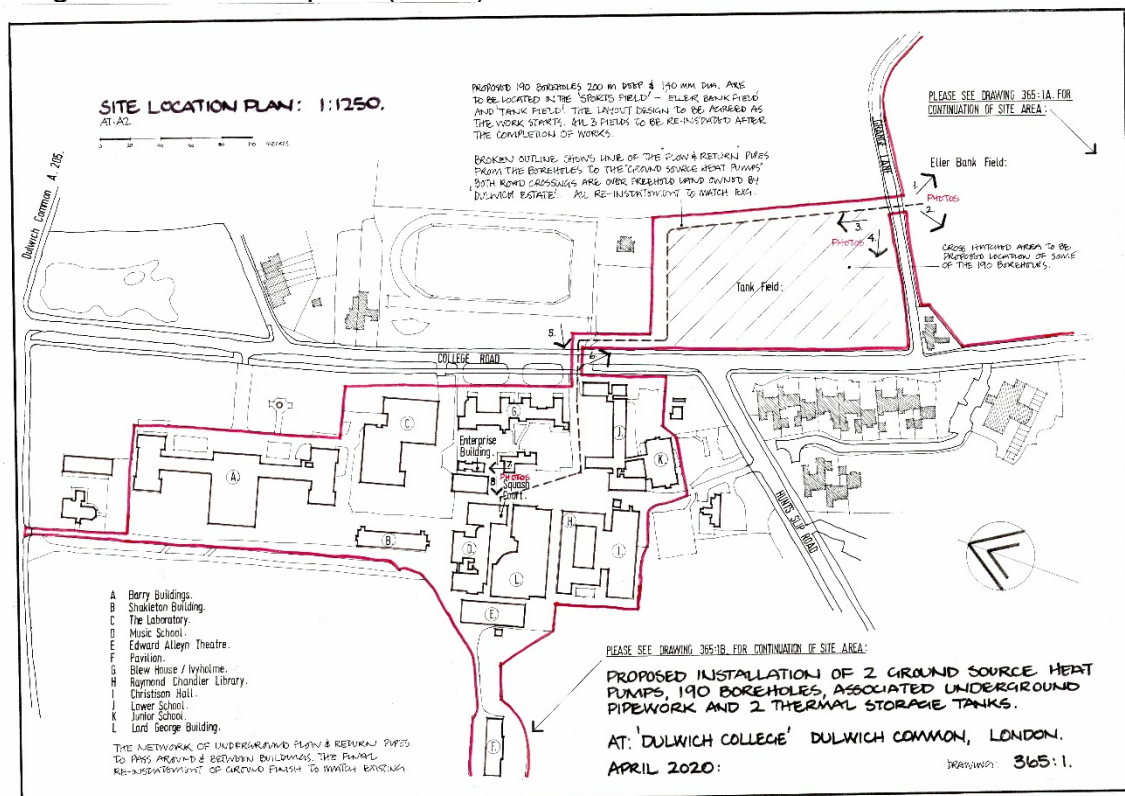 SITE LOCATION PLAN: 1:1250.
AT: A2
METERS
PROPOSED 190 BOREHOLES 200 m DEEP & 140 MM DIA. ARE
TO BE LOCATED IN THE 'SPORTS FIELD' – ELLER BANK FIELD
AND 'TANK FIELD'. THE LAYOUT DESIGN TO BE AGREED AS
THE WORK STARTS. ALL 3 FIELDS TO BE RE-INSTATED AFTER
THE COMPLETION OF WORKS.
BROKEN OUTLINE SHOWS LINE OF THE 'FLOW & RETURN' PIPES
FROM THE BOREHOLES TO THE 'GROUND SOURCE HEAT PUMPS'
BOTH ROAD CROSSINGS ARE OVER FREEHOLD LAND OWNED BY
'DULWICH ESTATE'. ALL RE-INSTATEMENT TO MATCH EXG.
PLEASE SEE DRAWING 365:1A. FOR
CONTINUATION OF SITE AREA:
GRANGE LANE
Eller Bank Field:
Dulwich Common A. 205.
1.
PHOTOS
2.
3.
4.
PHOTOS
CROSS HATCHED AREA TO BE
PROPOSED LOCATION OF SOME
OF THE 190 BOREHOLES.
Tank Field:
5.
6.
COLLEGE ROAD
HUNTS SLIP ROAD
G
C
J
Enterprise
Building.
7.
PHOTOS
8
Squash
Court.
K
A
B
H
I
D
L
E
F
A Barry Buildings.
B Shakleton Building.
C The Laboratory.
D Music School.
E Edward Alleyn Theatre.
F Pavilion.
G Blew House / Ivyholme.
H Raymond Chandler Library.
I Christison Hall.
J Lower School.
K Junior School.
L Lord George Building.
THE NETWORK OF UNDERGROUND FLOW & RETURN PIPES
TO PASS AROUND & BETWEEN BUILDINGS. THE FINAL
RE-INSTATEMENT OF GROUND FINISH TO MATCH EXISTING
PLEASE SEE DRAWING 365:1B. FOR CONTINUATION OF SITE AREA:
PROPOSED INSTALLATION OF 2 GROUND SOURCE HEAT
PUMPS, 190 BOREHOLES, ASSOCIATED UNDERGROUND
PIPEWORK AND 2 THERMAL STORAGE TANKS.
AT: 'DULWICH COLLEGE' DULWICH COMMON, LONDON.
APRIL 2020:
DRAWING: 365:1.